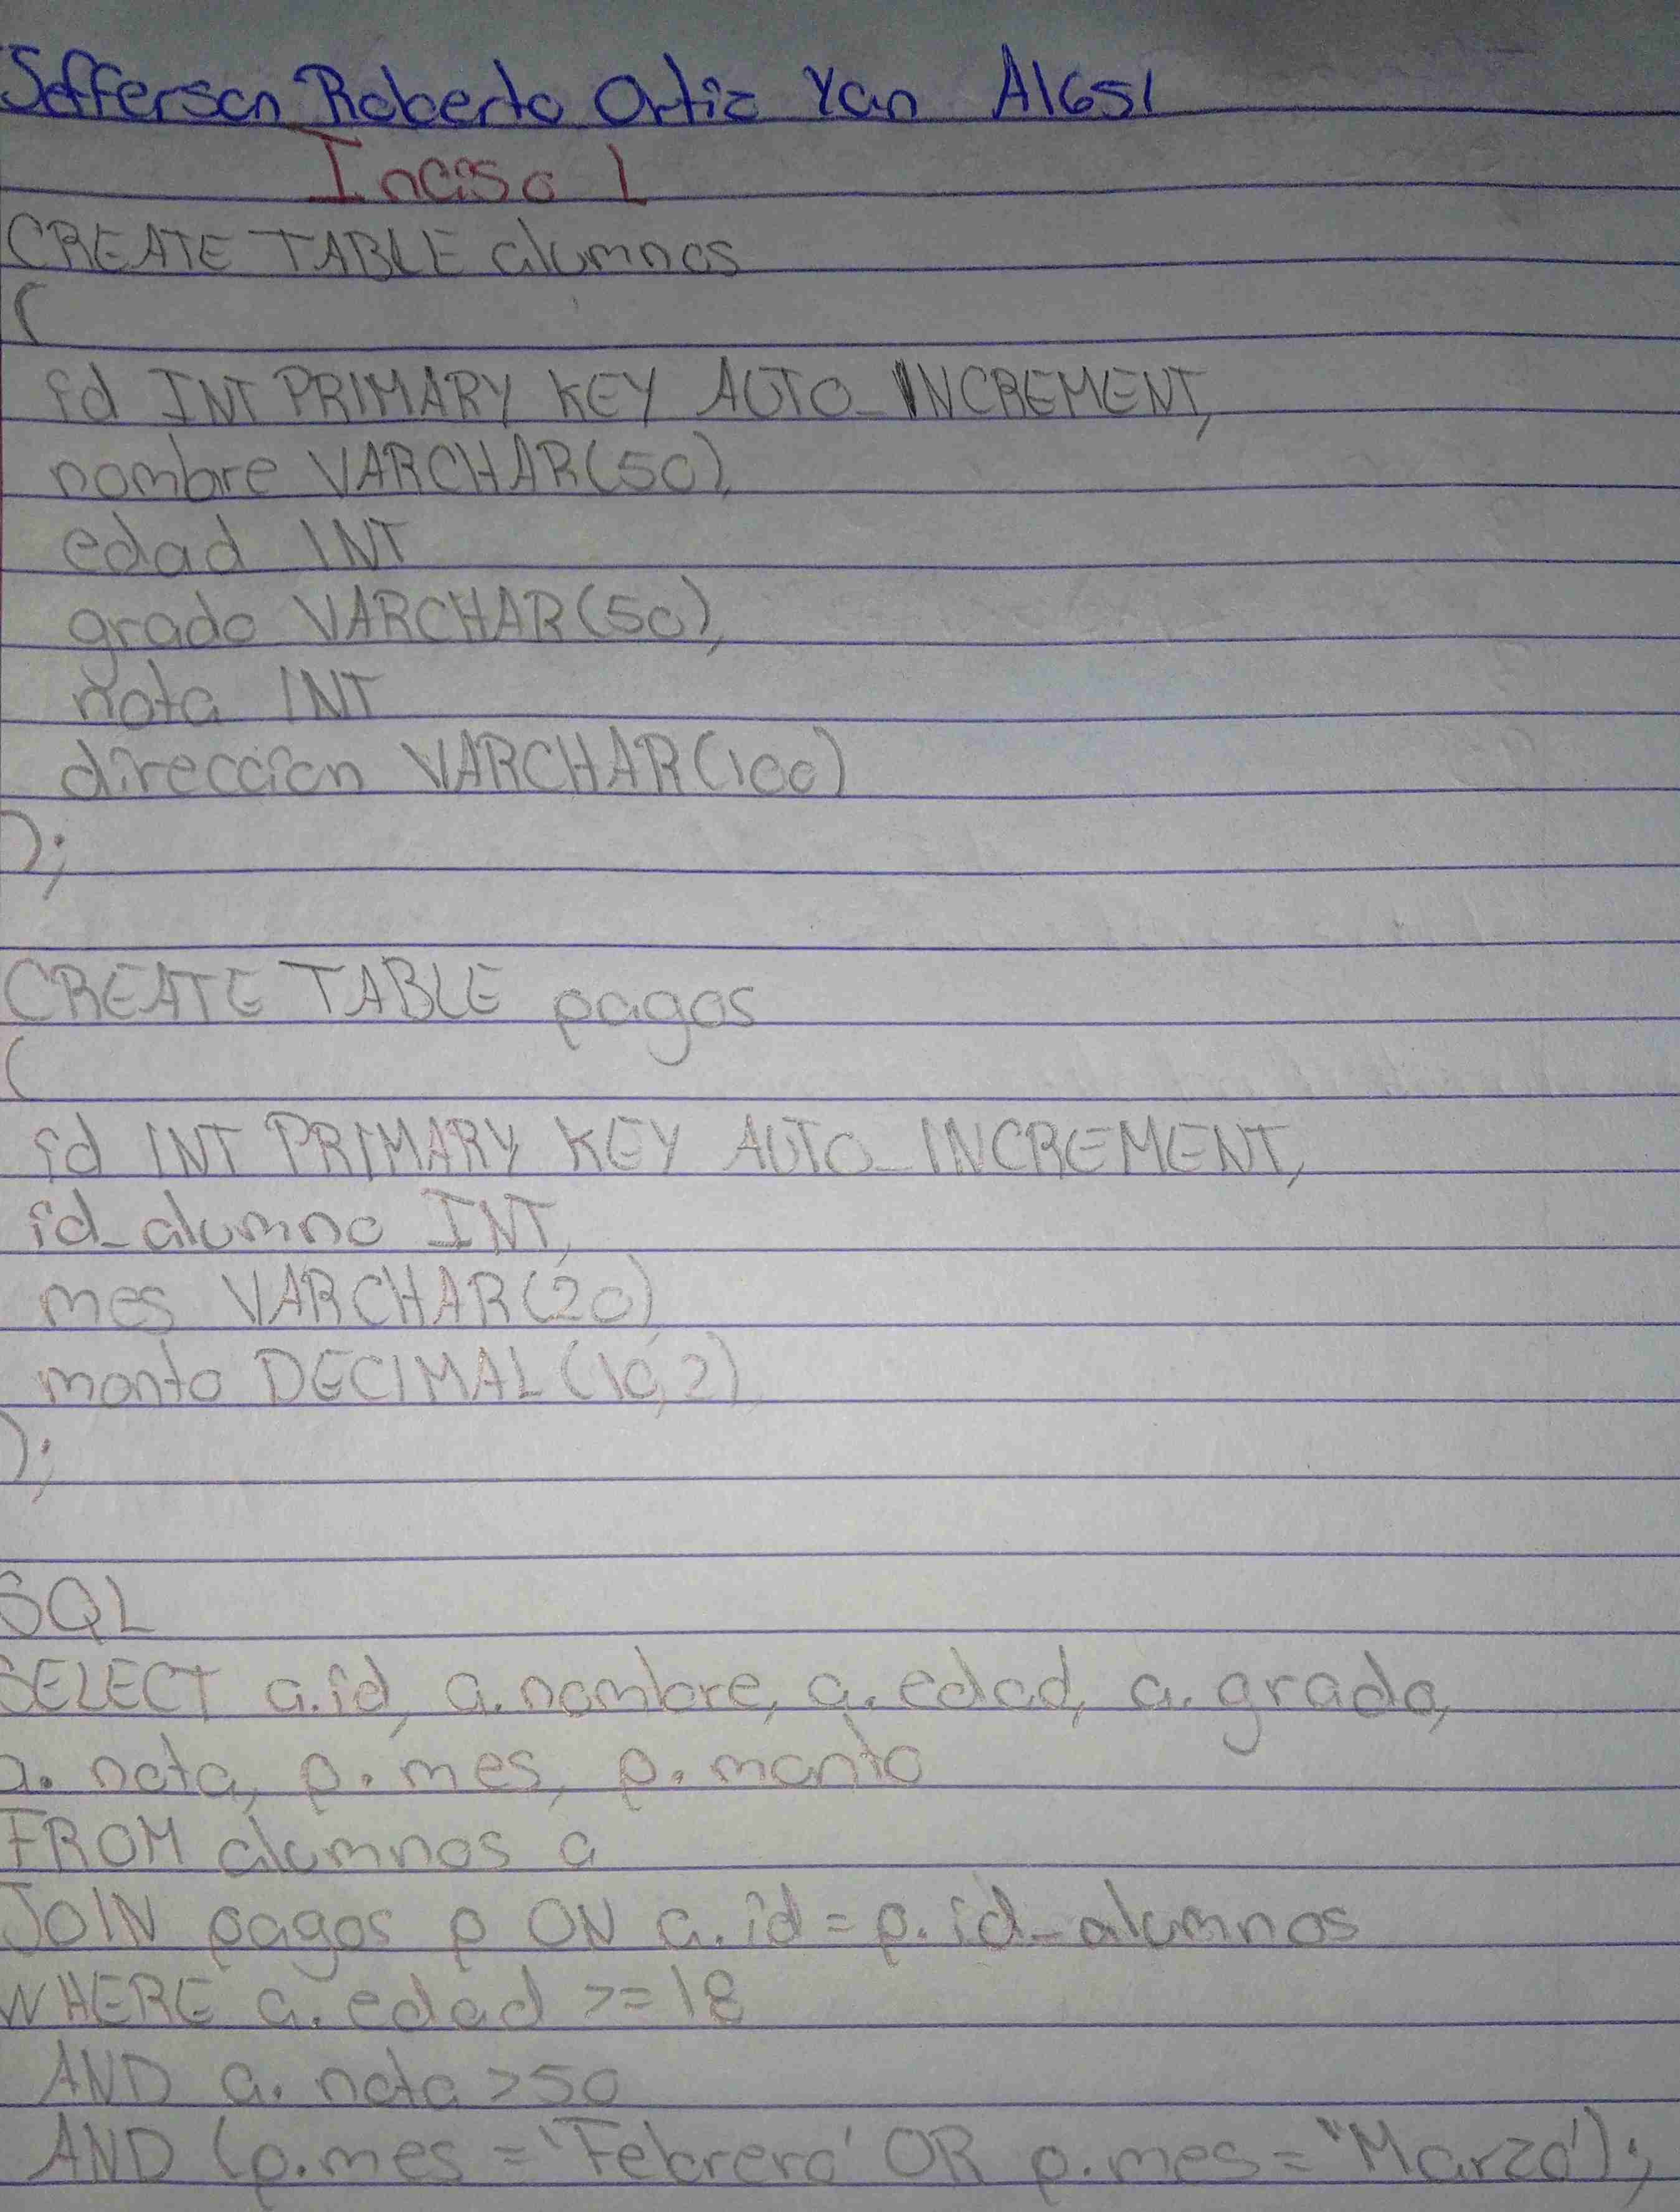 Jefferson Roberto Ortiz Yan A1651
Inciso 1
CREATE TABLE alumnos
(
id INT PRIMARY KEY AUTO_INCREMENT,
nombre VARCHAR(50),
edad INT
grado VARCHAR(50),
nota INT
direccion VARCHAR(100)
);
CREATE TABLE pagos
(
id INT PRIMARY KEY AUTO_INCREMENT,
id_alumno INT,
mes VARCHAR(20),
monto DECIMAL(10,2)
);
SQL
SELECT a.id, a.nombre, a.edad, a.grado,
a.nota, p.mes, p.monto
FROM alumnos a
JOIN pagos p ON a.id = p.id_alumnos
WHERE a.edad >= 18
AND a.nota > 50
AND (p.mes = 'Febrero' OR p.mes = "Marzo');